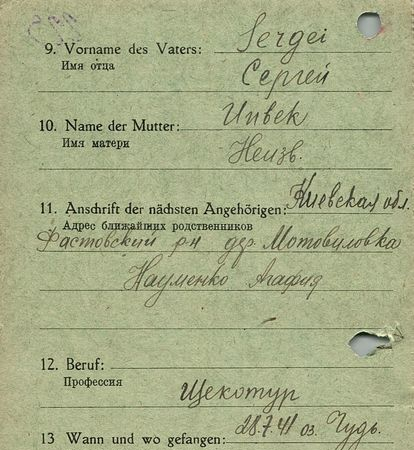 Sergei
9. Vorname des Vaters:
Имя отца
Сергей
Unbek
10. Name der Mutter:
Имя матери
Неизв.
11. Anschrift der nächsten Angehörigen: Киевская обл.
Адрес ближайших родственников
Фастовский р-н дер. Мотовиловка
Науменко Агафия
12. Beruf:
Профессия
Щекотур
13 Wann und wo gefangen: 28.7.41 оз. Чудь.